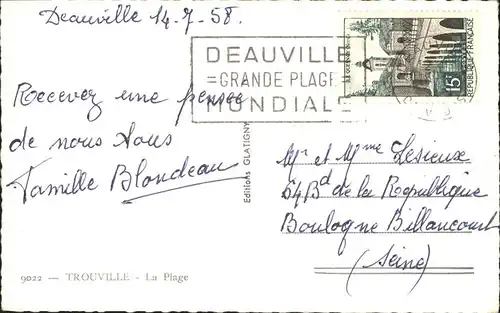 Deauville 14-7-58.
DEAUVILLE
=GRANDE PLAGE
MONDIALE
LE QUESNOY
15F
RÉPUBLIQUE FRANÇAISE
Recevez une pensée
de nous tous
Famille Blondeau
Editions GLATIGNY
Mr et Mme Lesieux
54 Bd de la République
Boulogne Billancourt
(Seine)
9022 — TROUVILLE - La Plage